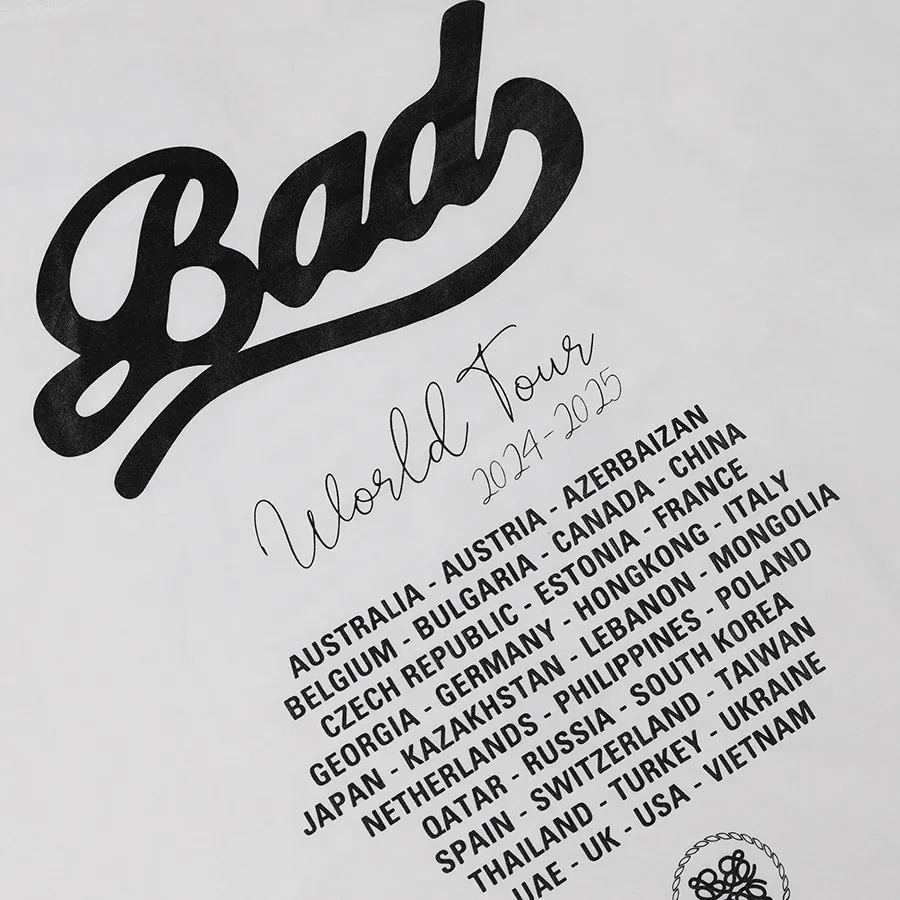 Bad
World Tour
2024-2025
AUSTRALIA - AUSTRIA - AZERBAIZAN
BELGIUM - BULGARIA - CANADA - CHINA
CZECH REPUBLIC - ESTONIA - FRANCE
GEORGIA - GERMANY - HONGKONG - ITALY
JAPAN - KAZAKHSTAN - LEBANON - MONGOLIA
NETHERLANDS - PHILIPPINES - POLAND
QATAR - RUSSIA - SOUTH KOREA
SPAIN - SWITZERLAND - TAIWAN
THAILAND - TURKEY - UKRAINE
UAE - UK - USA - VIETNAM